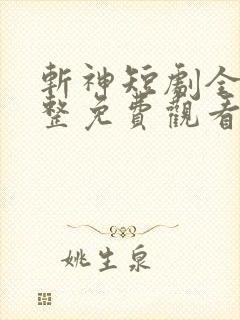 斬神短劇全
整免費觀看
姚生泉